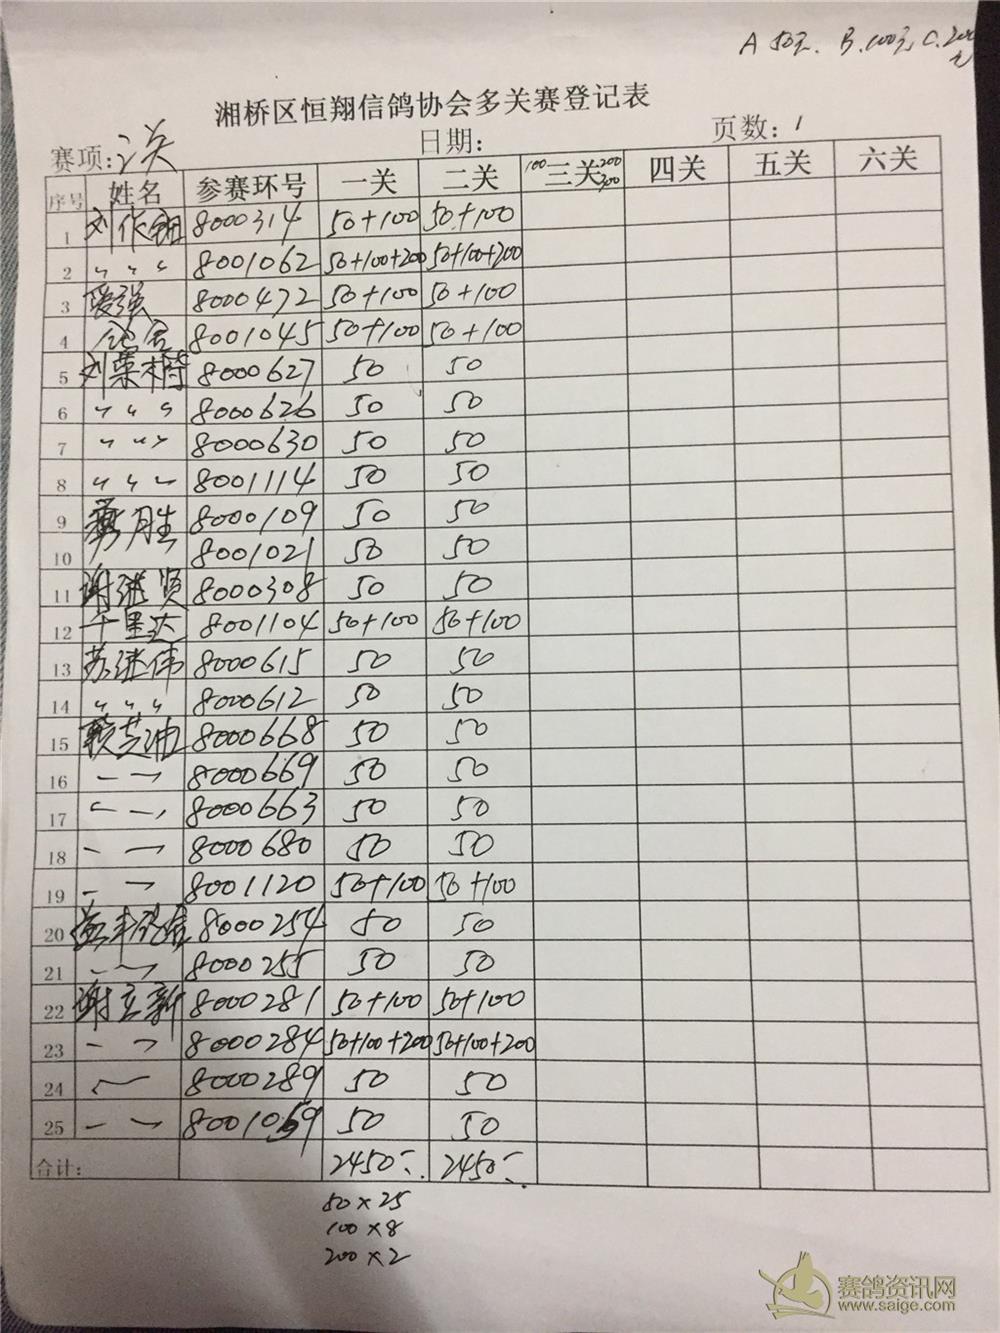 A 50元. B.100元 C.200元
湘桥区恒翔信鸽协会多关赛登记表
赛项: 关 日期: 页数: 1
序号 姓名 参赛环号 一关 二关 100 三关 200 300 四关 五关 六关
1 刘作 8000314 50+100 50+100
2 〃 〃 〃 8001062 50+100+200 50+100+200
3 强 8000472 50+100 50+100
4 8001045 50+100 50+100
5 刘 8000627 50 50
6 〃 〃 〃 8000626 50 50
7 〃 〃 〃 8000630 50 50
8 〃 〃 〃 8001114 50 50
9 月胜 8000109 50 50
10 8001021 50 50
11 谢继贤 8000308 50 50
12 千里达 8001104 50+100 50+100
13 苏继伟 8000615 50 50
14 〃 〃 〃 8000612 50 50
15 8000668 50 50
16 8000669 50 50
17 8000663 50 50
18 8000680 50 50
19 8001120 50+100 50+100
20 8000254 50 50
21 8000255 50 50
22 谢立新 8000281 50+100 50+100
23 8000284 50+100+200 50+100+200
24 8000289 50 50
25 8001059 50 50
合计: 2450 2450
50×25
100×8
200×2
赛鸽资讯网
www.saige.com